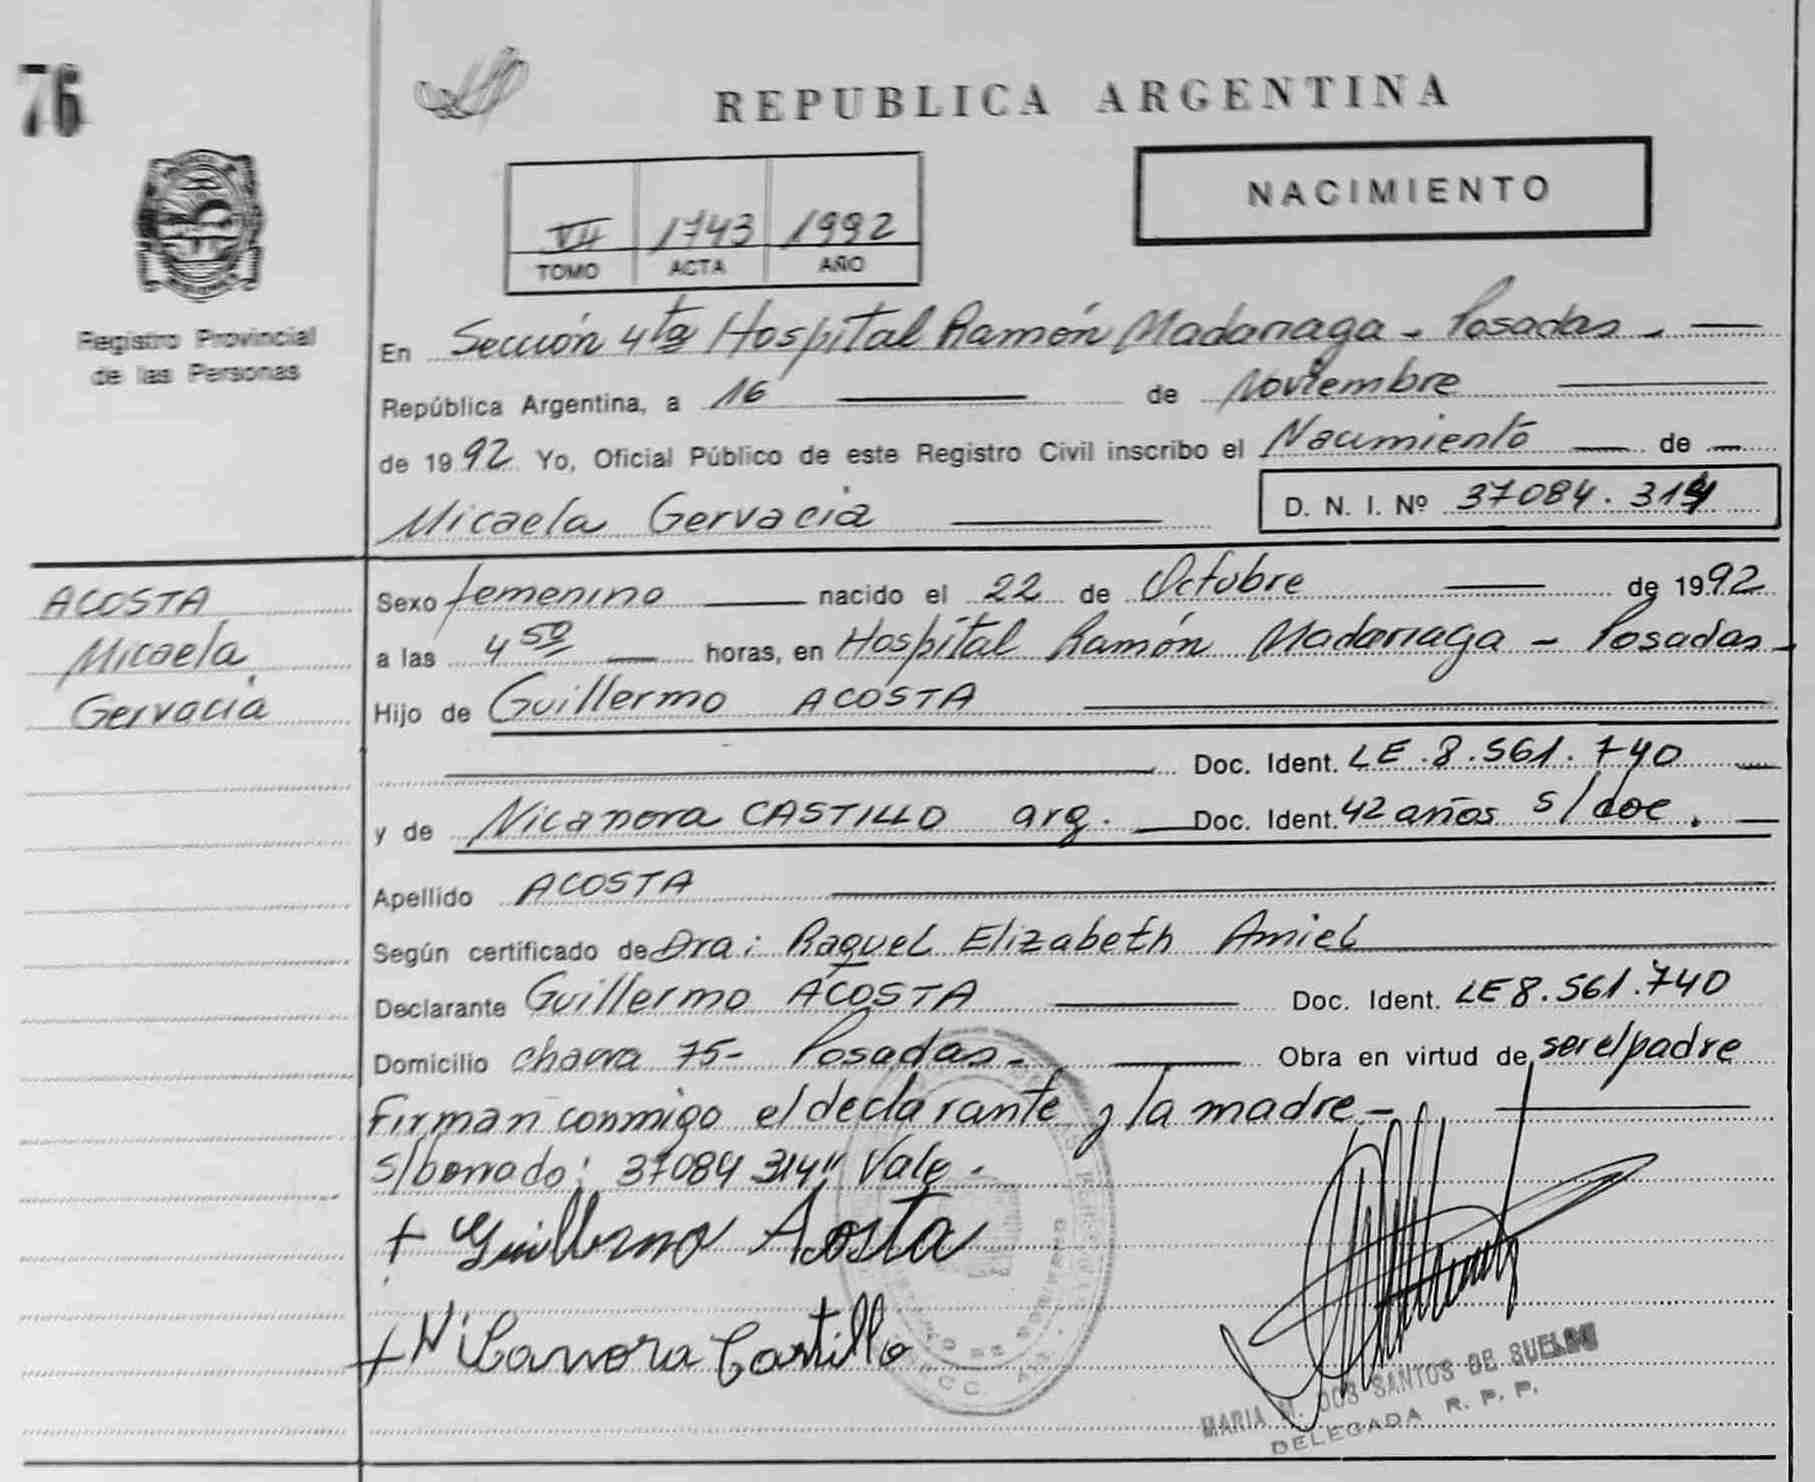 76
REPUBLICA ARGENTINA
NACIMIENTO
VII 1743 1992
TOMO ACTA AÑO
Registro Provincial
de las Personas
En Sección 4ta Hospital Ramón Madariaga - Posadas -
República Argentina, a 16 de Noviembre
de 1992 Yo, Oficial Público de este Registro Civil inscribo el Nacimiento de
Micaela Gervacia D. N. I. Nº 37084.314
ACOSTA
Micaela
Gervacia
Sexo femenino nacido el 22 de Octubre de 1992
a las 4 50 horas, en Hospital Ramón Madariaga - Posadas -
Hijo de Guillermo ACOSTA
Doc. Ident. LE.8.561.740
y de Nicanora CASTILLO arg. Doc. Ident. 42 años s/doc.
Apellido ACOSTA
Según certificado de Dra: Raquel Elizabeth Amiel
Declarante Guillermo ACOSTA Doc. Ident. LE 8.561.740
Domicilio chacra 75- Posadas - Obra en virtud de ser el padre
Firman conmigo el declarante y la madre.-
s/borrado: 37084 314" Vale.
+ Guillermo Acosta
+ Nicanora Castillo
MARIA M. DOS SANTOS DE
DELEGADA R. P. P.